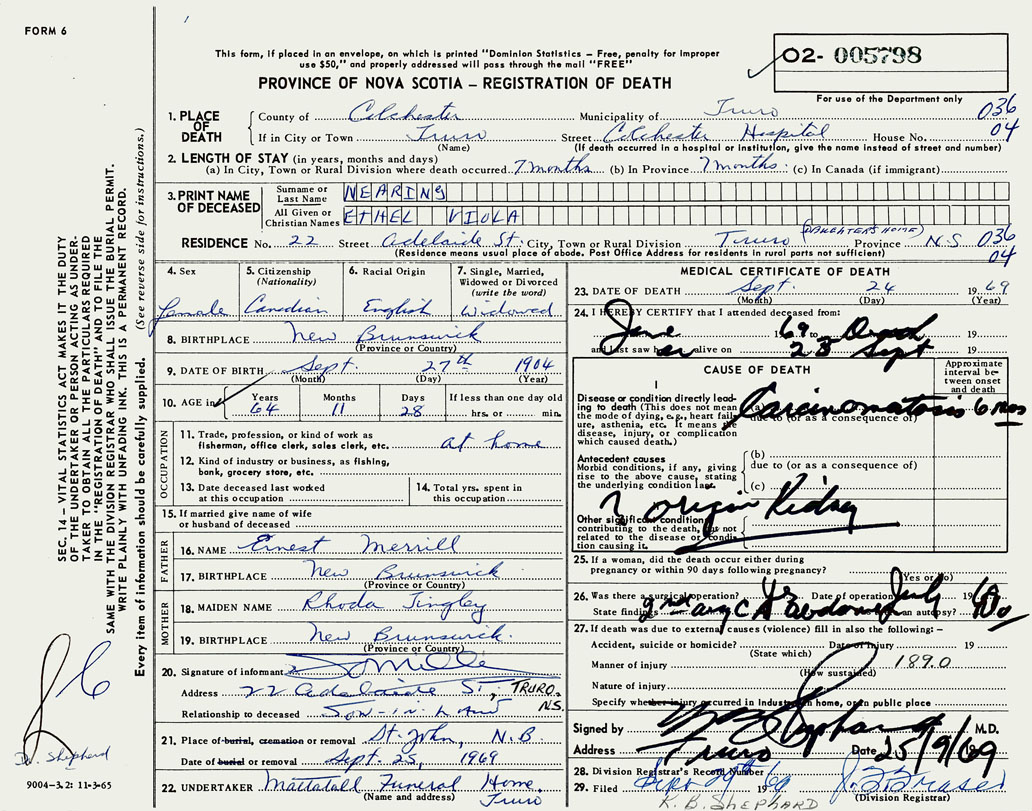 FORM 6
This form, if placed in an envelope, on which is printed "Dominion Statistics – Free, penalty for improper
use $50," and properly addressed will pass through the mail "FREE"
02- 005798
PROVINCE OF NOVA SCOTIA – REGISTRATION OF DEATH
For use of the Department only
1. PLACE OF DEATH
County of Colchester Municipality of Truro 036
If in City or Town Truro Street Colchester Hospital House No. 04
(Name) (If death occurred in a hospital or institution, give the name instead of street and number)
2. LENGTH OF STAY (in years, months and days)
(a) In City, Town or Rural Division where death occurred 7 months (b) In Province 7 months. (c) In Canada (if immigrant)
3. PRINT NAME OF DECEASED
Surname or Last Name NEARING
All Given or Christian Names ETHEL VIOLA
RESIDENCE No. 22 Street Adelaide St. City, Town or Rural Division Truro (DAUGHTER'S HOME) Province N.S. 036
(Residence means usual place of abode. Post Office Address for residents in rural parts not sufficient) 04
4. Sex
female
5. Citizenship
(Nationality)
Canadian
6. Racial Origin
English
7. Single, Married,
Widowed or Divorced
(write the word)
Widowed
8. BIRTHPLACE New Brunswick
(Province or Country)
9. DATE OF BIRTH Sept. 27th 1904
(Month) (Day) (Year)
10. AGE in
Years Months Days If less than one day old
64 11 28 hrs. or min.
OCCUPATION
11. Trade, profession, or kind of work as
fisherman, office clerk, sales clerk, etc. at home
12. Kind of industry or business, as fishing,
bank, grocery store, etc.
13. Date deceased last worked
at this occupation
14. Total yrs. spent in
this occupation
15. If married give name of wife
or husband of deceased
FATHER
16. NAME Ernest Merrill
17. BIRTHPLACE New Brunswick
(Province or Country)
MOTHER
18. MAIDEN NAME Rhoda Tingley
19. BIRTHPLACE New Brunswick.
(Province or Country)
20. Signature of informant
Address 22 Adelaide St, TRURO, N.S.
Relationship to deceased Son-in-Law
21. Place of burial, cremation or removal St. John, N.B.
Date of burial or removal Sept. 25, 1969
22. UNDERTAKER Mattatall Funeral Home,
(Name and address) Truro
MEDICAL CERTIFICATE OF DEATH
23. DATE OF DEATH Sept. 24 1969
(Month) (Day) (Year)
24. I HEREBY CERTIFY that I attended deceased from:
June 1969 to Death 19
and last saw her alive on 23 Sept 19
CAUSE OF DEATH
Approximate
interval be-
tween onset
and death
I
Disease or condition directly lead-
ing to death (This does not mean
the mode of dying, e.g., heart fail-
ure, asthenia, etc. It means the
disease, injury, or complication
which caused death.)
(a) Carcinomatosis 6 mos
due to (or as a consequence of)
Antecedent causes
Morbid conditions, if any, giving
rise to the above cause, stating
the underlying condition last.
(b)
due to (or as a consequence of)
(c)
? origin Kidney
Other significant conditions
contributing to the death, but not
related to the disease or condi-
tion causing it.
25. If a woman, did the death occur either during
pregnancy or within 90 days following pregnancy?
(Yes or No)
26. Was there a surgical operation? Yes Date of operation July 1969
State findings Was there an autopsy? No
27. If death was due to external causes (violence) fill in also the following: –
Accident, suicide or homicide? Date of injury 19
(State which)
Manner of injury 189.0
(How sustained)
Nature of injury
Specify whether injury occurred in Industry, in home, or in public place
Signed by M.D.
Address Truro Date 25/9/69
28. Division Registrar's Record Number
29. Filed 1969
(Division Registrar)
K. B. SHEPHARD
SEC. 14 – VITAL STATISTICS ACT MAKES IT THE DUTY
OF THE UNDERTAKER OR PERSON ACTING AS UNDER-
TAKER TO OBTAIN ALL THE PARTICULARS REQUIRED
IN THE "REGISTRATION OF DEATH" AND TO FILE THE
SAME WITH THE DIVISION REGISTRAR WHO SHALL ISSUE THE BURIAL PERMIT.
WRITE PLAINLY WITH UNFADING INK. THIS IS A PERMANENT RECORD.
Every item of information should be carefully supplied. (See reverse side for instructions.)
Dr. Shepherd
9004-3.2: 11-3-65